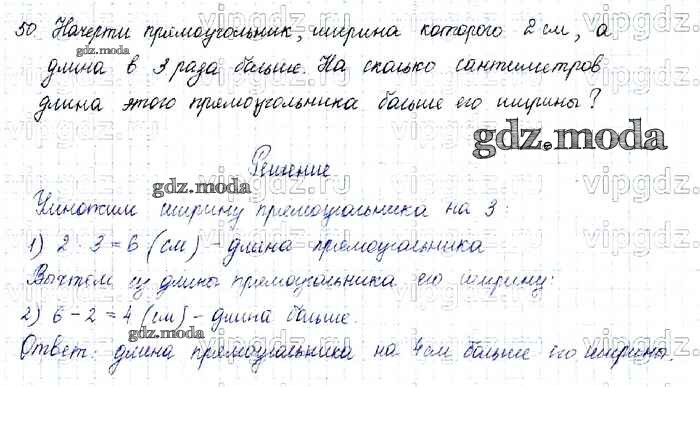 50 Начерти прямоугольник, ширина которого 2 см, а
длина в 3 раза больше. На сколько сантиметров
длина этого прямоугольника больше его ширины?
Решение
Умножим ширину прямоугольника на 3:
1) 2 · 3 = 6 (см) - длина прямоугольника
Вычтем из длины прямоугольника его ширину:
2) 6 - 2 = 4 (см) - длина больше.
Ответ: длина прямоугольника на 4 см больше его ширины.
gdz.moda
gdz.moda
gdz.moda
gdz.moda
vipgdz.ru
vipgdz.ru
vipgdz.ru
vipgdz.ru